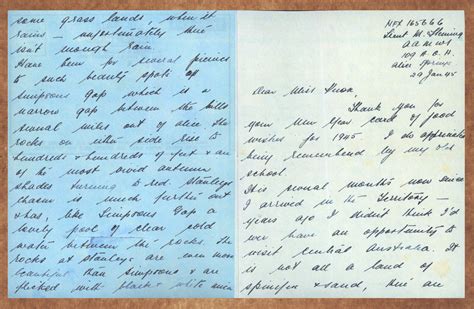 NFX 165666
Lieut M. Fleming
A A M W S
109 A.G.H.
Alice Springs
29 Jan 45
Dear Miss
Thank you for
your New Year card of good
wishes for 1945 I do appreciate
being remembered by my old
school.
It is several months now since
I arrived in the Territory –
years ago I didn't think I'd
ever have an opportunity to
visit Central Australia. It
is not all a land of
spinifex & sand, there are
some grass lands, when it
rains – unfortunately there
isn't enough rain.
Have been for several picnics
to such beauty spots as
Simpsons Gap which is a
narrow gap between the hills
several miles out of Alice. The
rocks on either side rise to
hundreds & hundreds of feet & are
of the most vivid autumn
shades turning to red. Stanleys
chasm is much further out
& has, like Simpsons Gap a
lovely pool of clear cold
water between the rocks. The
rocks at Stanleys are even more
beautiful than Simpsons & are
flecked with black & white